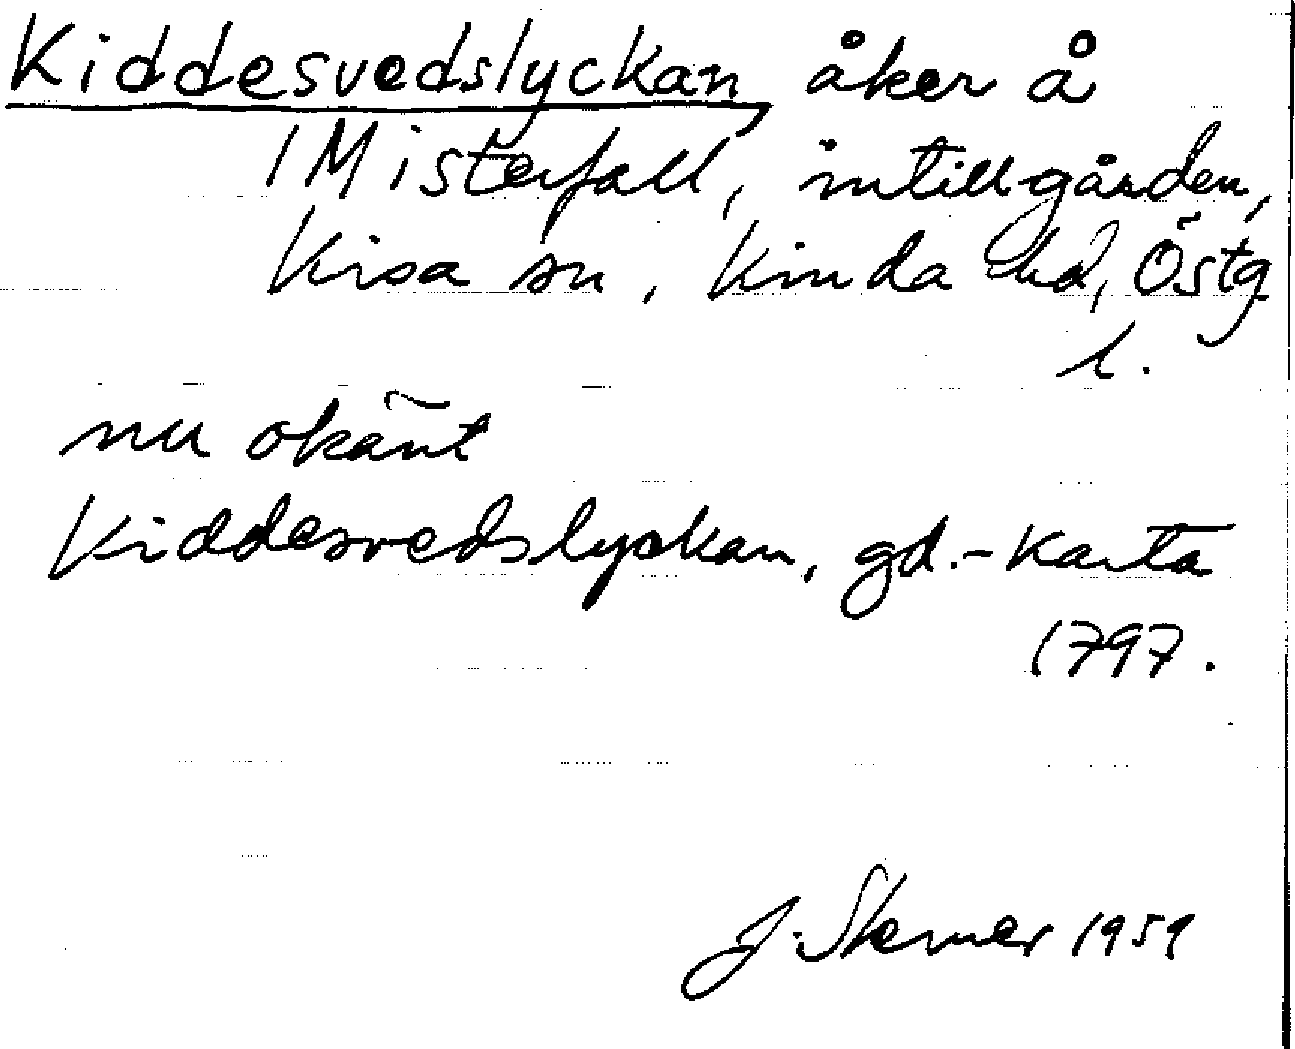 Kiddesvedslyckan, åker å
Misterfall, intill gården,
Kisa sn, Kinda hd, Östg
l.
nu okänt
Kiddesvedslyckan, gd.-karta
1797.
J. Sterner 1959